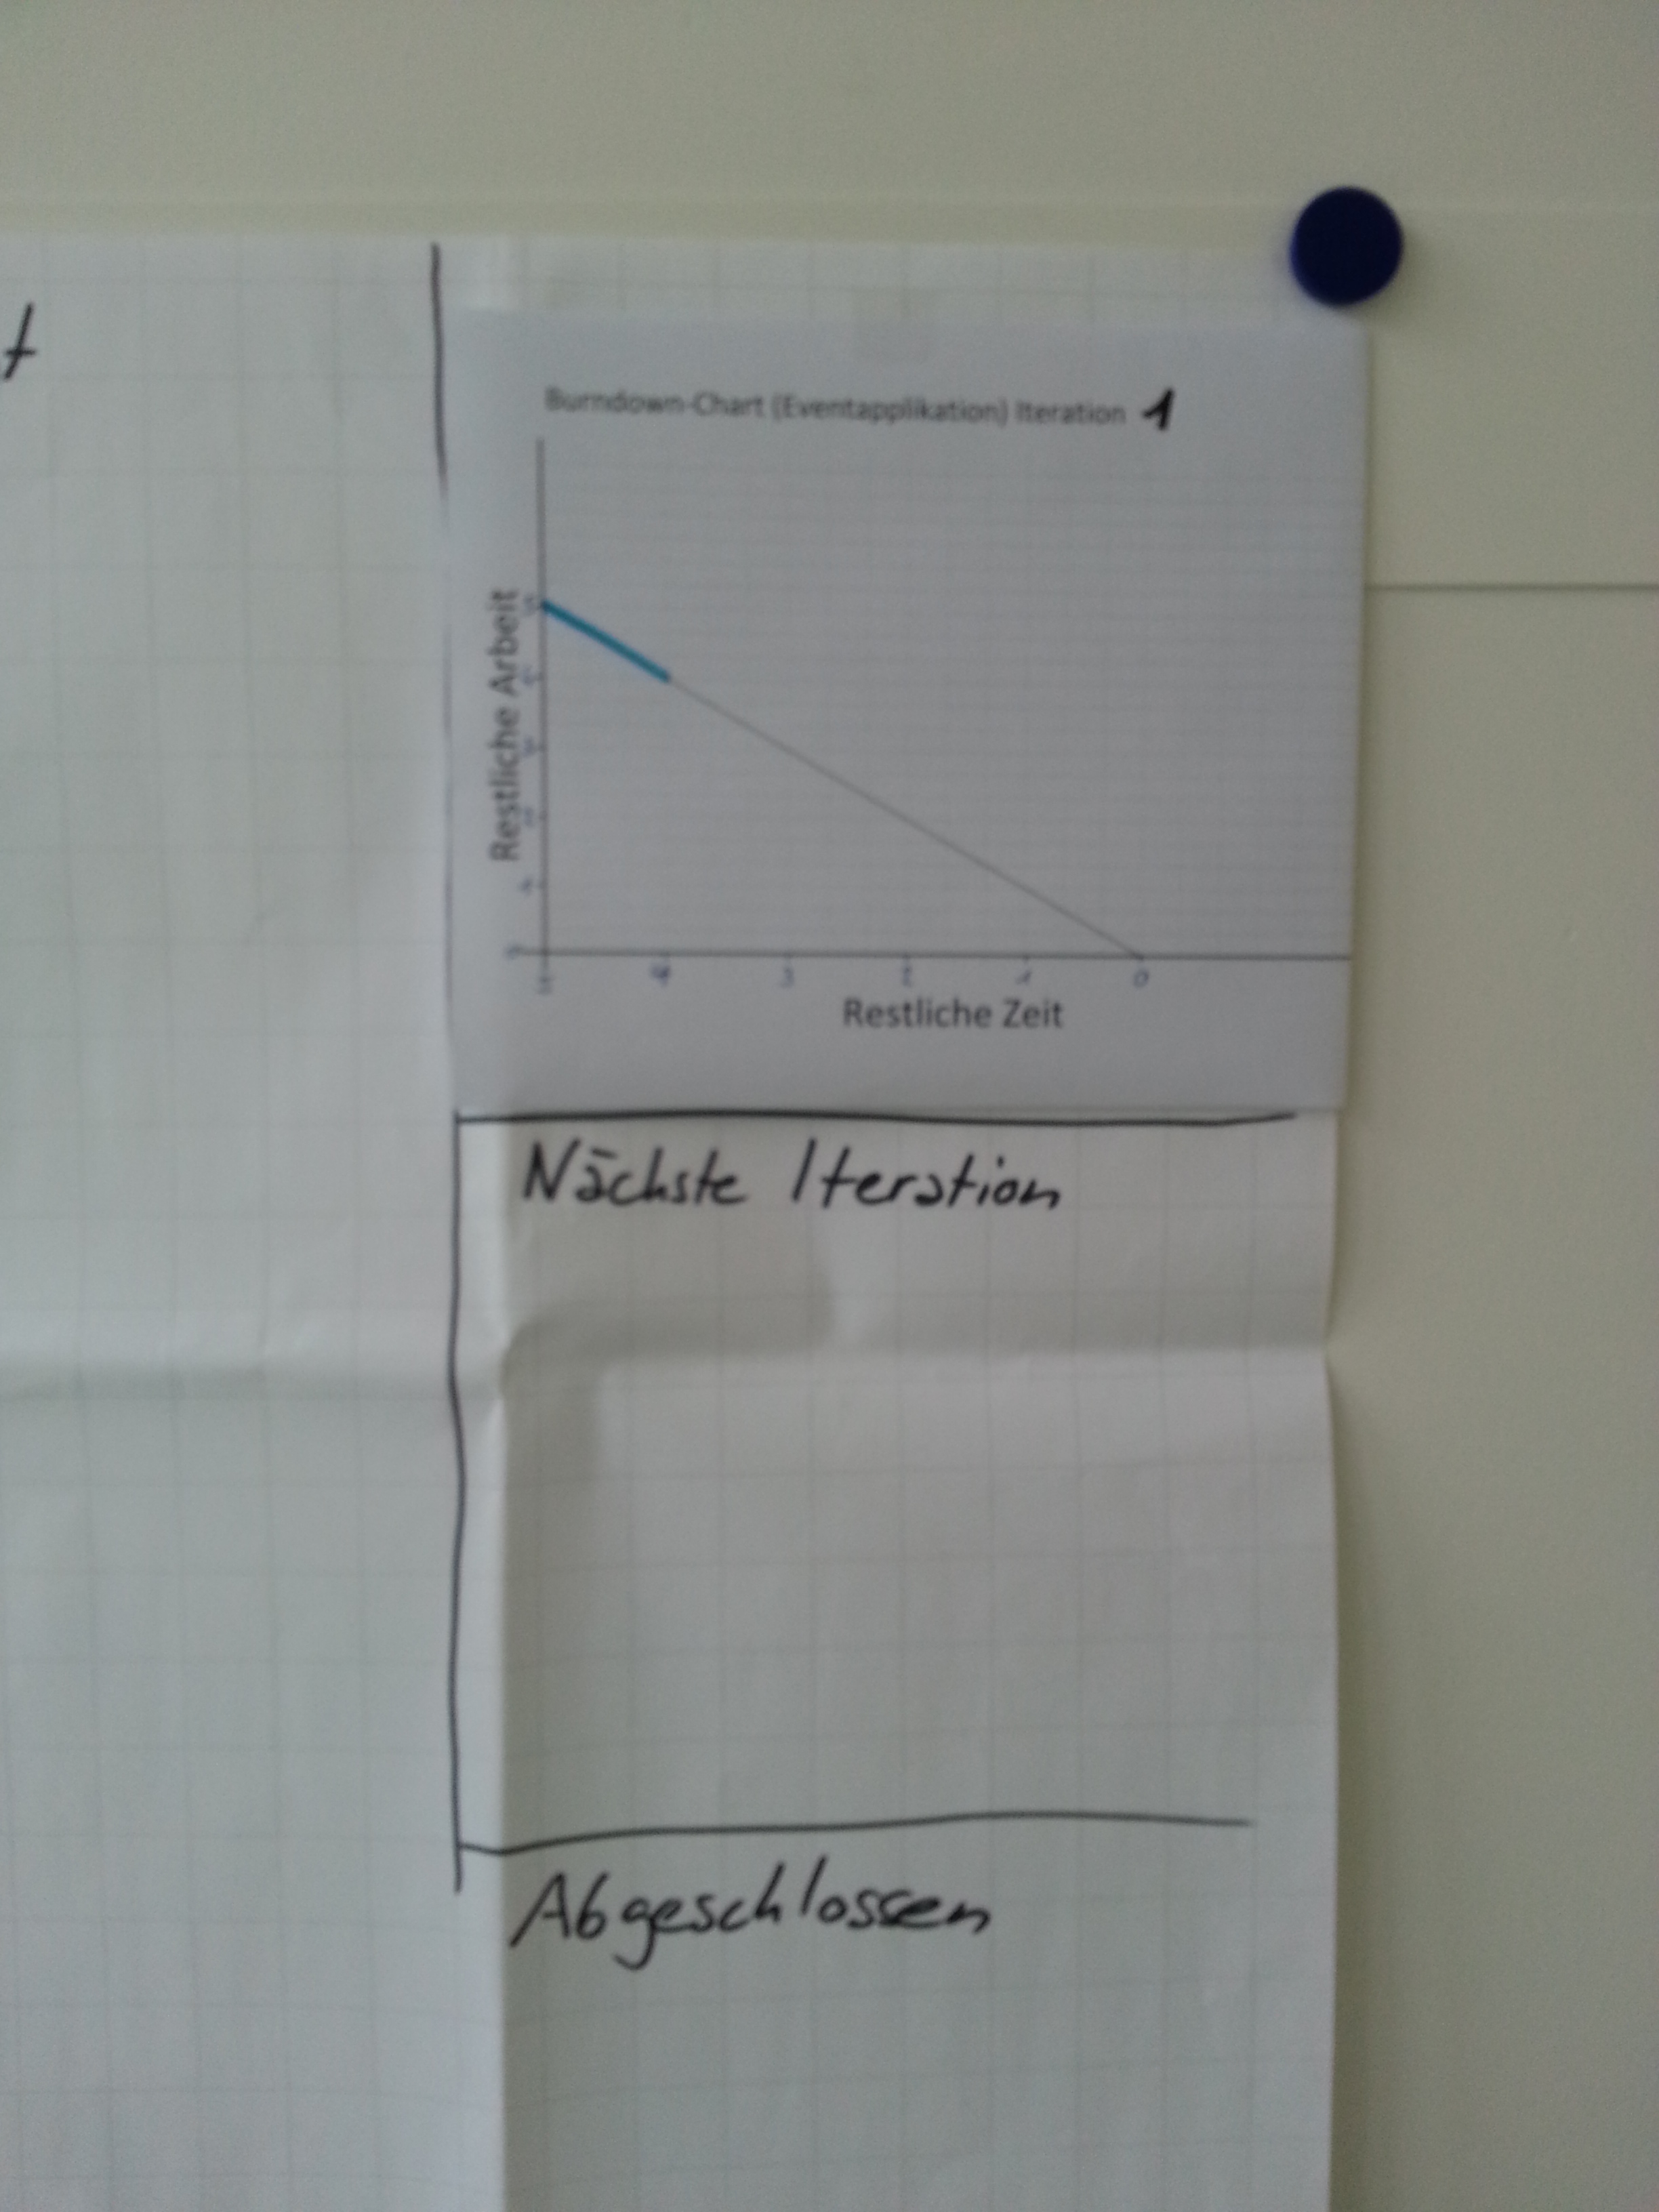 t
Burndown-Chart (Eventapplikation) Iteration 1
Restliche Arbeit
5
4
3
2
1
0
5 4 3 2 1 0
Restliche Zeit
Nächste Iteration
Abgeschlossen